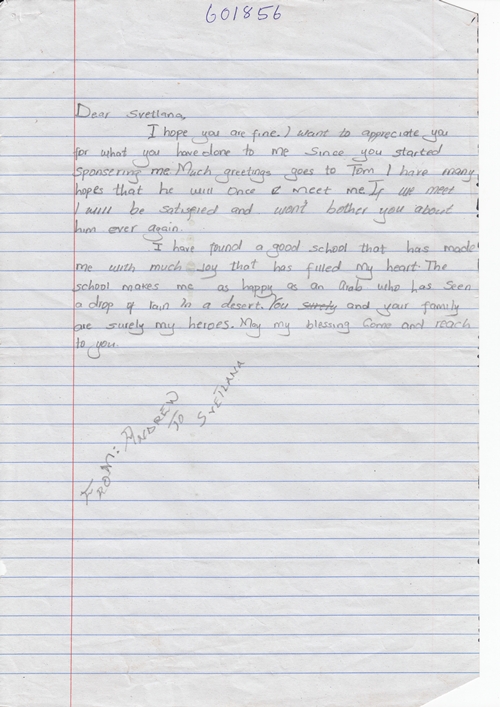 601856
Dear Svetlana,
I hope you are fine. I want to appreciate you
for what you have done to me since you started
sponsering me. Much greetings goes to Tom. I have many
hopes that he will once meet me. If we meet
I will be satisfied and won't bother you about
him ever again.
I have found a good school that has made
me with much joy that has filled my heart. The
school makes me as happy as an Arab who has seen
a drop of rain in a desert. You surely and your family
are surely my heroes. May my blessing come and reach
to you.
FROM: ANDREW
TO SVETLANA